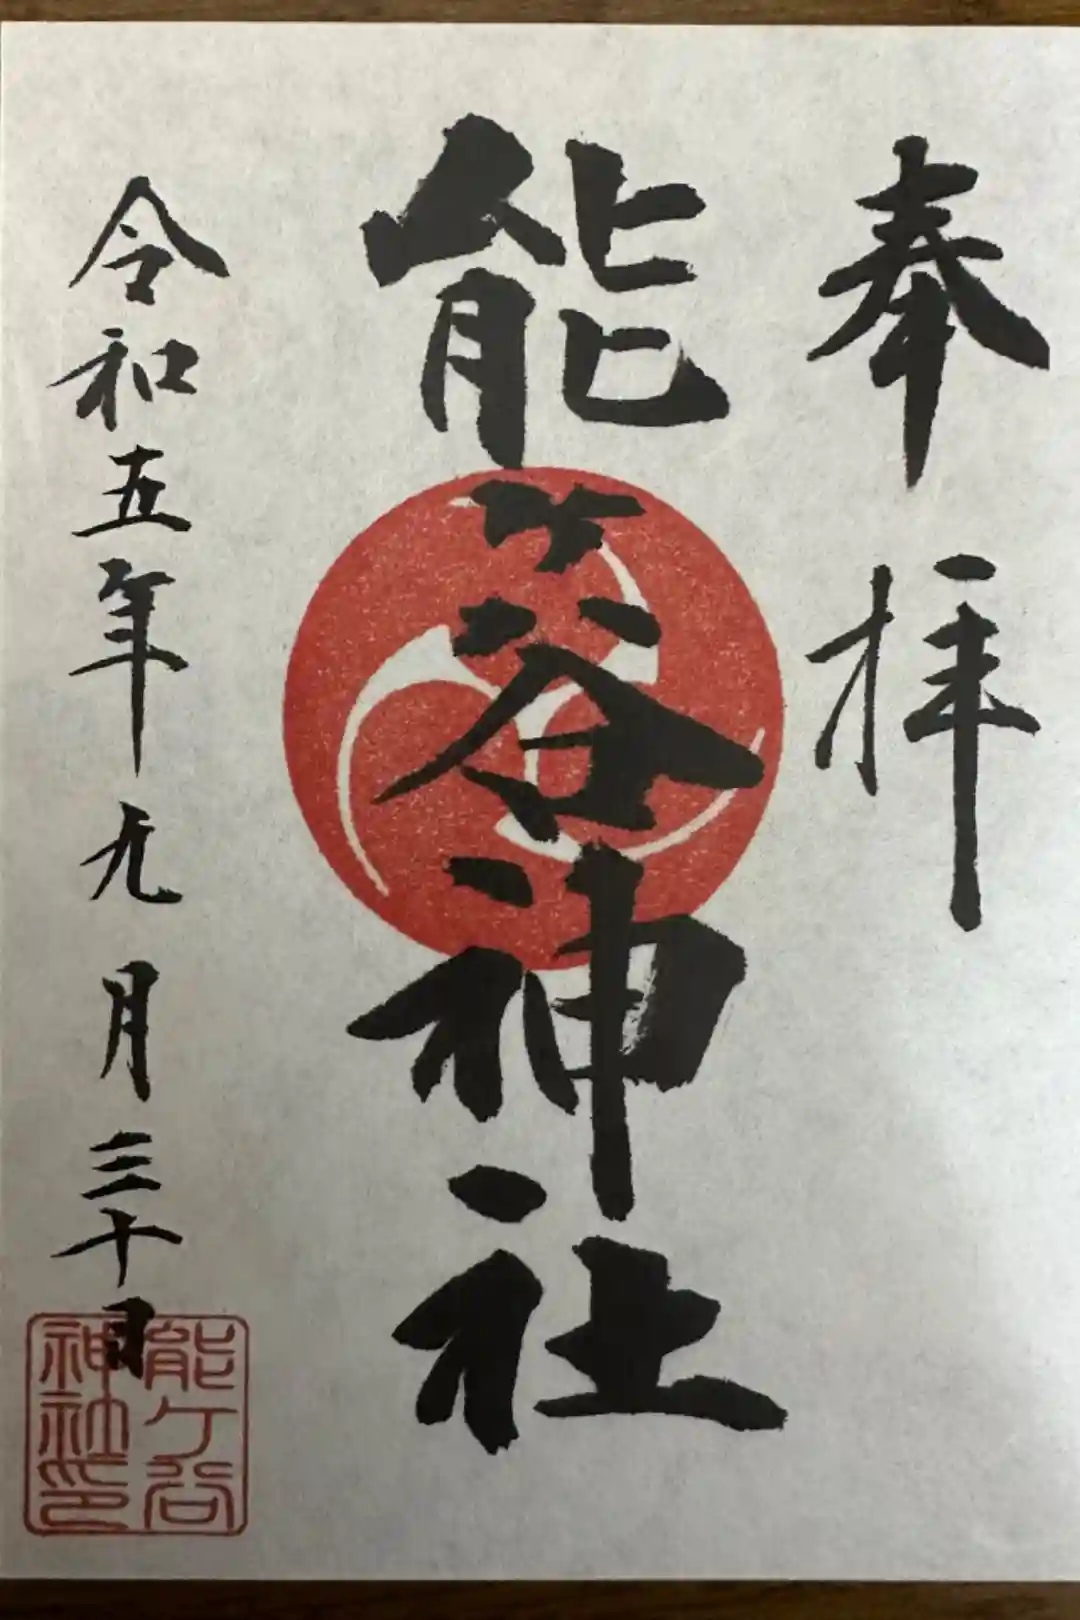 奉拝
能ヶ谷神社
令和五年九月三十日
能ケ谷
神社印